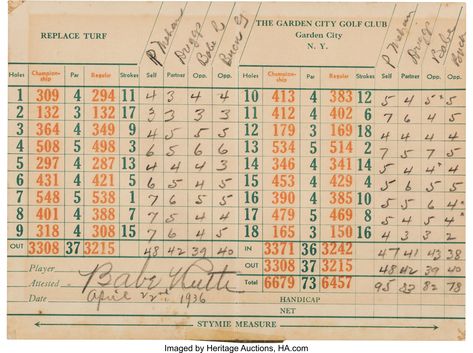 REPLACE TURF
THE GARDEN CITY GOLF CLUB
Garden City
N. Y.
P Mahan Driggs Babe Buck
P Mahan Driggs Babe Buck
Holes Champion-ship Par Regular Strokes Self Partner Opp. Opp.
Holes Champion-ship Par Regular Strokes Self Partner Opp. Opp.
1 309 4 294 11 4 3 4 4
10 413 4 383 12 5 4 5 5
2 132 3 132 17 3 3 3 3
11 412 4 402 6 7 6 4 5
3 364 4 349 9 4 5 5 5
12 179 3 169 18 4 4 4 4
4 508 5 498 3 6 5 6 6
13 534 5 514 2 7 5 7 5
5 297 4 287 13 4 4 4 3
14 346 4 341 14 5 4 4 4
6 431 4 421 5 6 5 4 5
15 453 4 429 4 5 6 5 5
7 548 5 538 1 7 6 5 5
16 390 4 385 10 5 5 6 4
8 401 4 388 7 7 5 4 4
17 479 5 469 8 5 4 5 4
9 318 4 308 15 7 6 4 5
18 165 3 150 16 4 3 3 2
OUT 3308 37 3215 48 42 39 40
IN 3371 36 3242 47 41 43 38
OUT 3308 37 3215 48 42 39 40
Total 6679 73 6457 95 83 82 78
Player
Attested Babe Ruth
Date April 22nd 1936
HANDICAP
NET
STYMIE MEASURE
Imaged by Heritage Auctions, HA.com